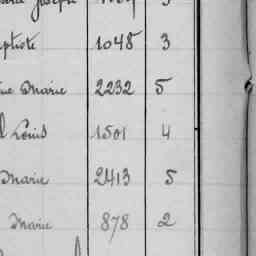 Joseph
1048 3
Marie 2232 5
Louis 1501 4
Marie 2413 5
Marie 878 2